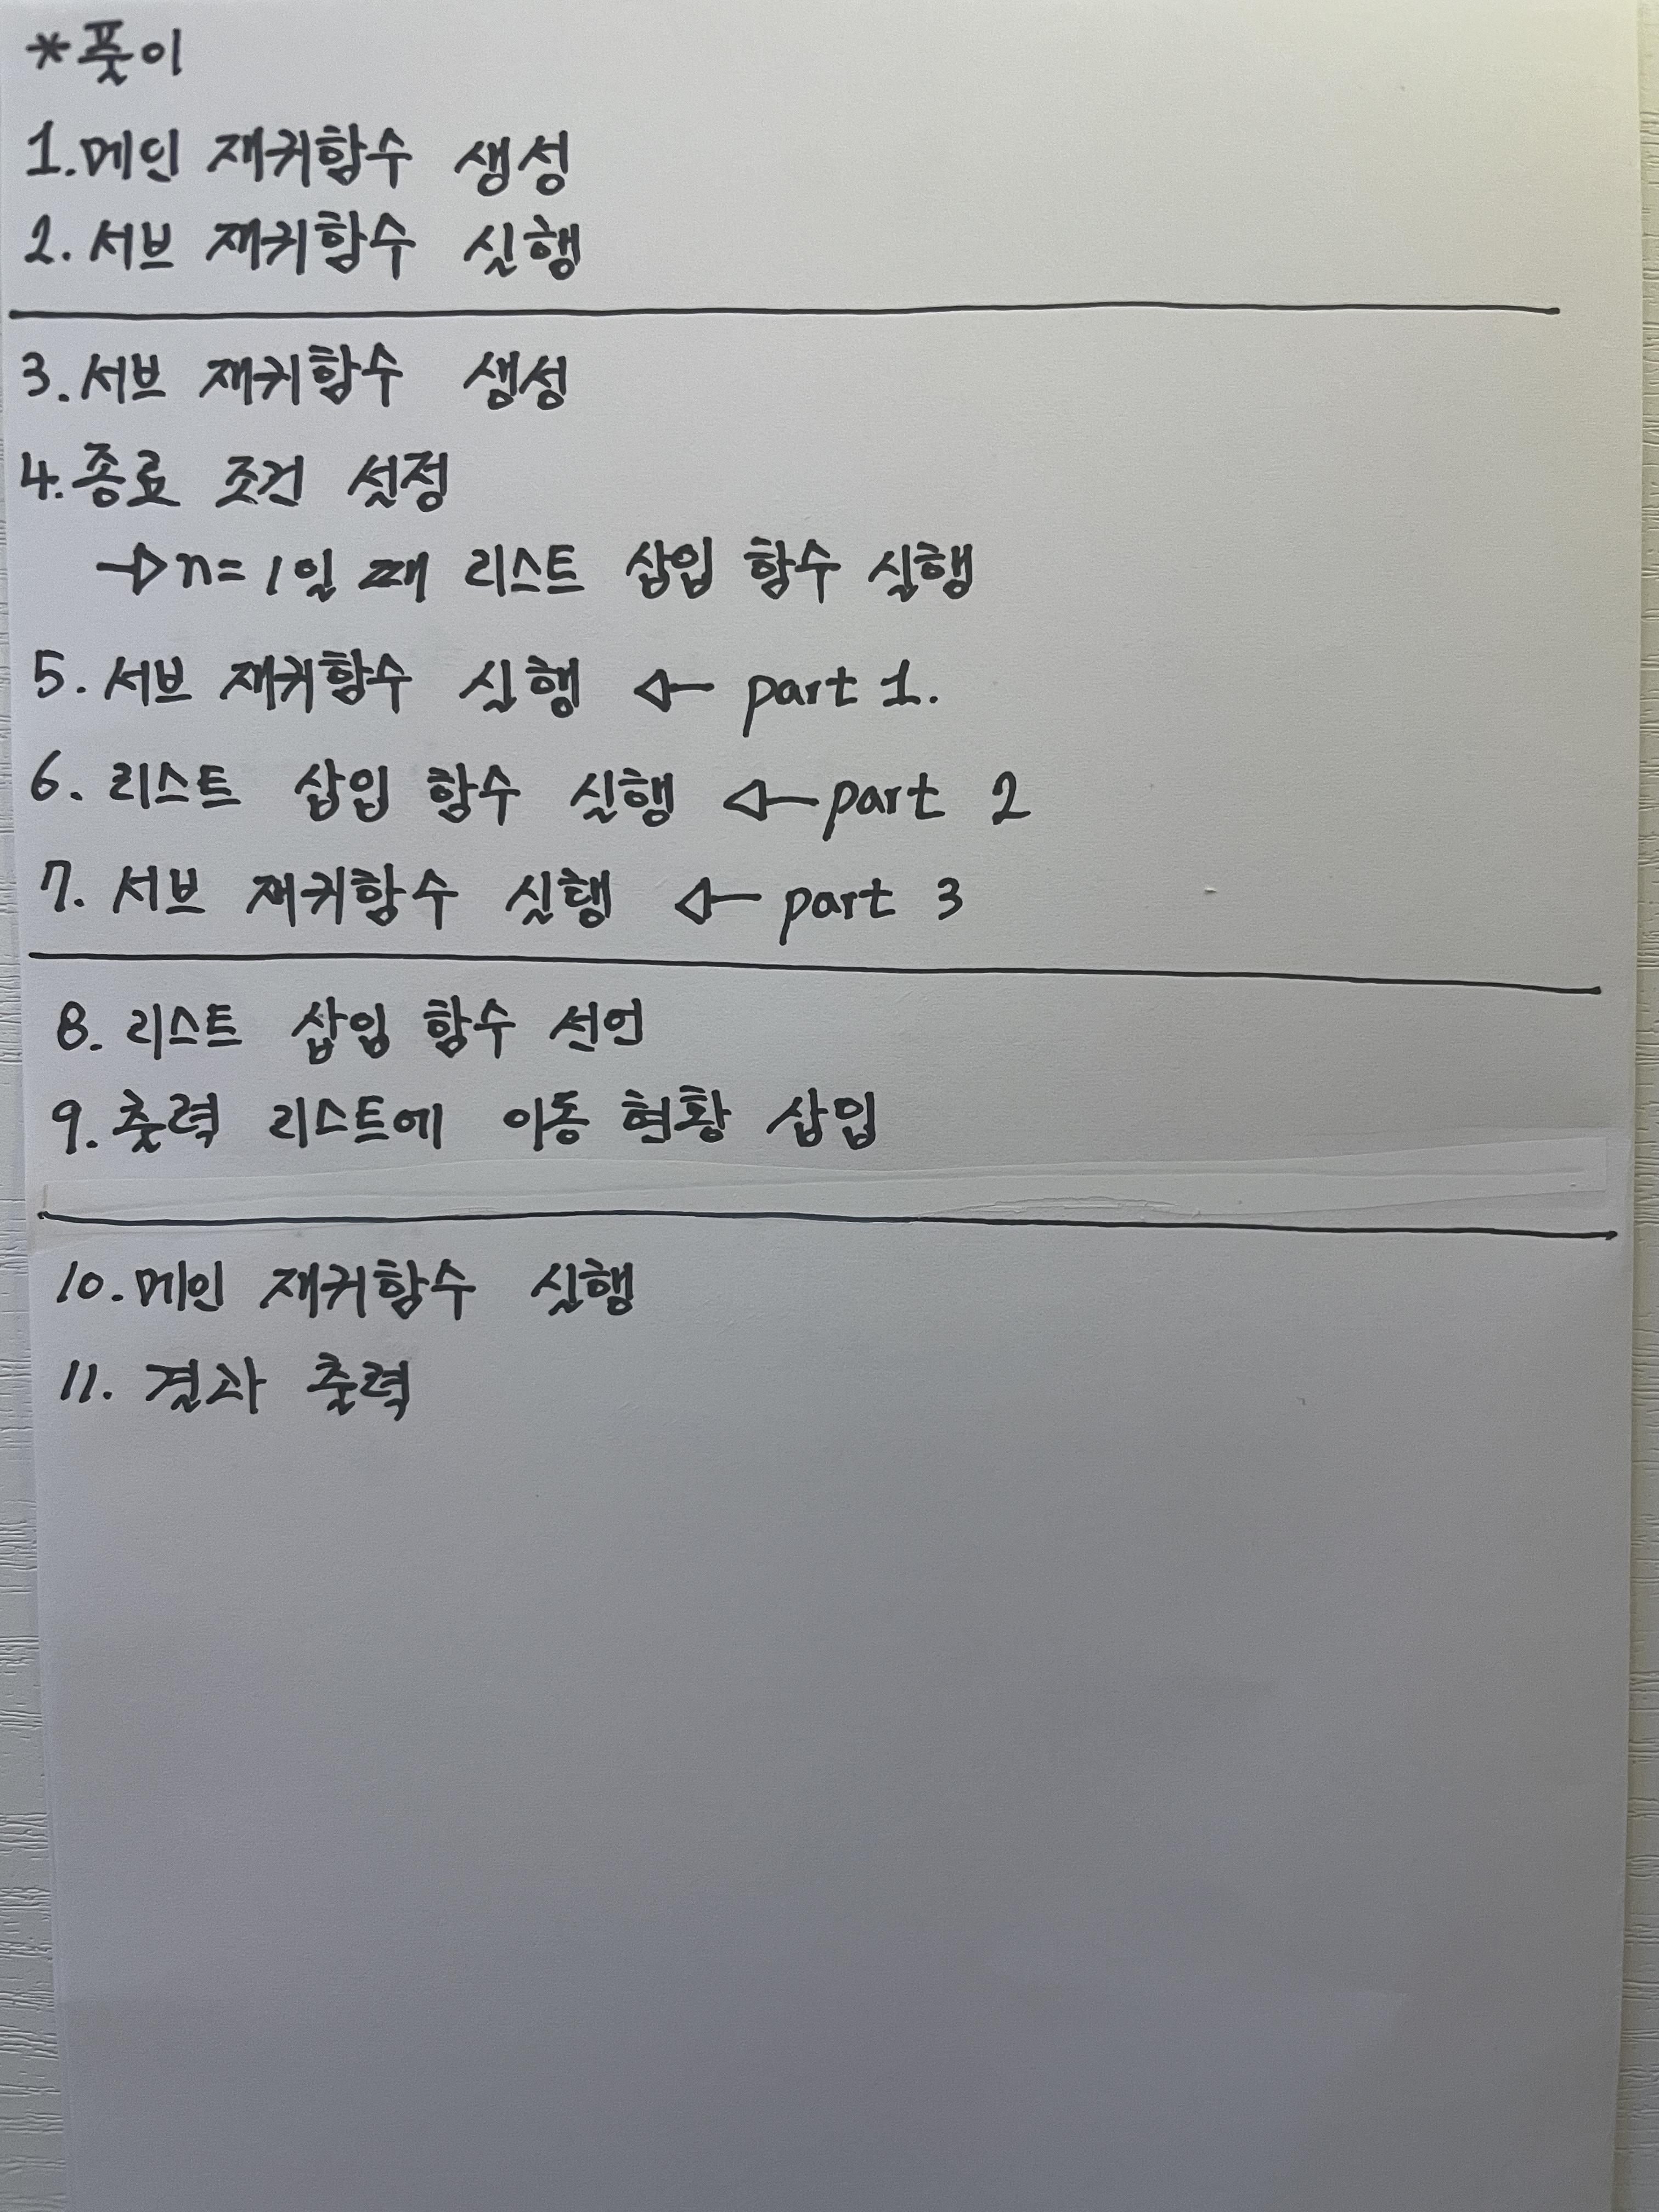 *풀이
1.메인 재귀함수 생성
2. 서브 재귀함수 실행
3. 서브 재귀함수 생성
4.종료 조건 설정
→n=1일 때 리스트 삽입 함수 실행
5. 서브 재귀함수 실행 ← part 1.
6. 리스트 삽입 함수 실행 ←part 2
7. 서브 재귀함수 실행 ← part 3
8. 리스트 삽입 함수 선언
9.출력 리스트에 이동 현황 삽입
10.메인 재귀함수 실행
11. 결과 출력